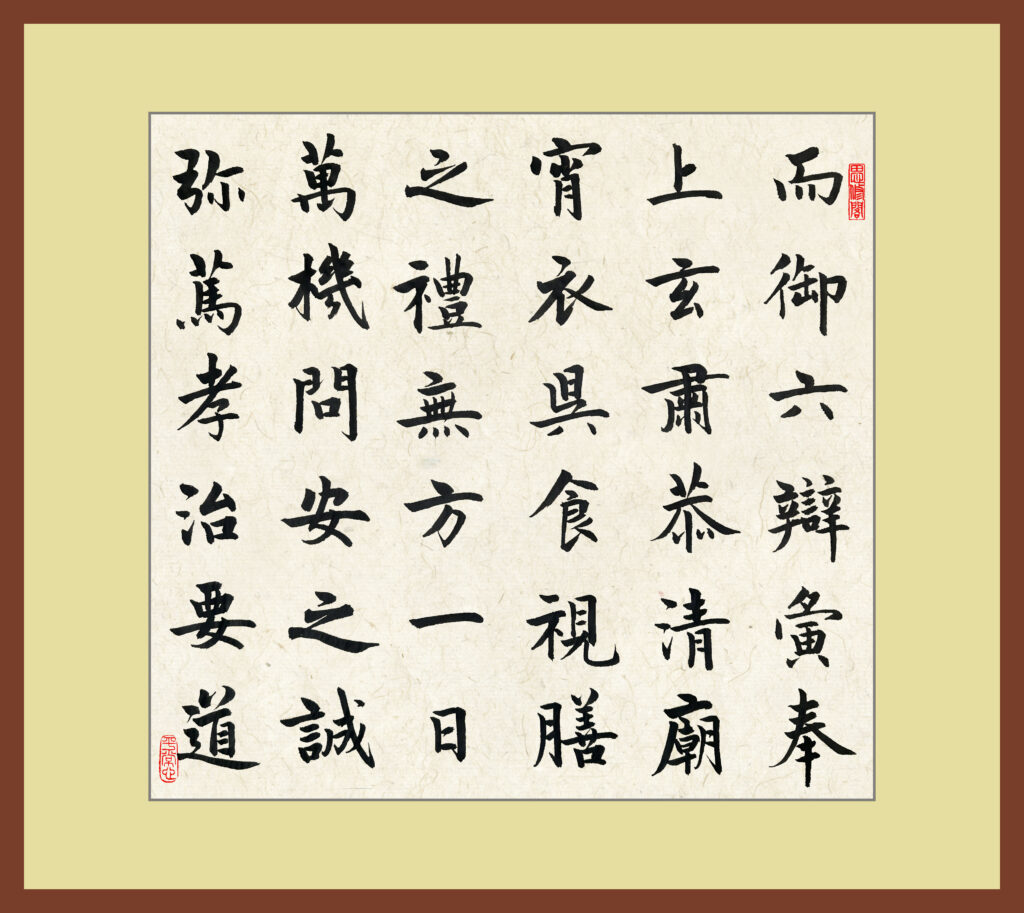 思修閣
而御六辯夤奉
上玄肅恭清廟
宵衣昃食視膳
之禮無方一日
萬機問安之誠
弥篤孝治要道
平常心